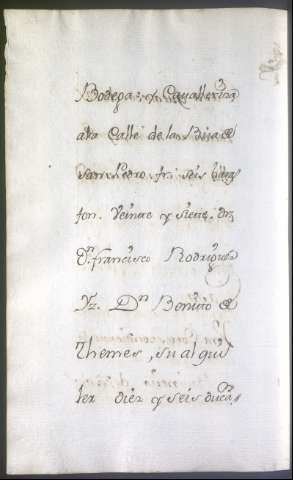 Bodega, y Cavalleriza
ala Calle de la
San Pedro, fs. seis
ton. Veinte y siete. de
Dn. francisco Rodrigue
Yz. Dn Benito de
Themes, su alqui
ler diez y seis duca